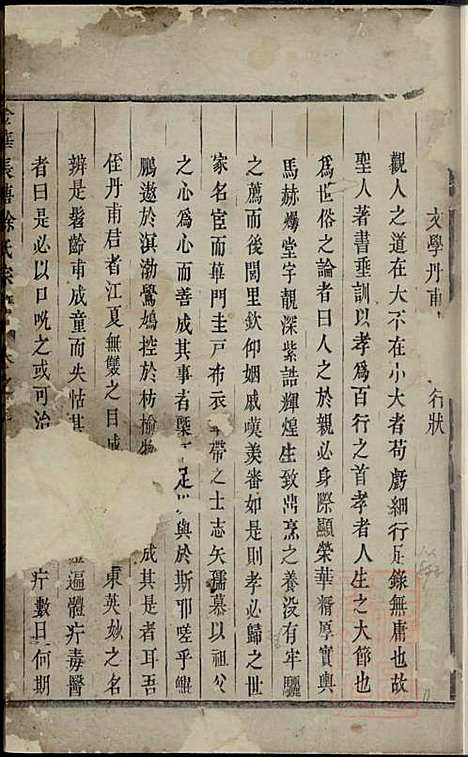 文學丹甫 行狀
觀人之道在大不在小大者苟虧細行足錄無庸也故
聖人著書垂訓以孝爲百行之首孝者人生之大節也
爲世俗之論者曰人之於親必身際顯榮華糈厚實輿
馬赫爀堂宇靚深紫誥輝煌生致鼎烹之養没有牢驪
之薦而後閭里欽仰姻戚嘆羡審如是則孝必歸之世
家名宦而蓽門圭戸布衣 帶之士志矢孺慕以祖父
之心爲心而善成其事者槩 足 與於斯耶嗟乎鯤
鵬遨於溟渤鷽鳩控於枋揄 成其是者耳吾
侄丹甫君者江夏無雙之目 東英妙之名
辨是髫齡甫成童而失怙其 遍體疔毒醫
者曰是必以口吮之或可治 疔數日何期
金華長 徐氏宗